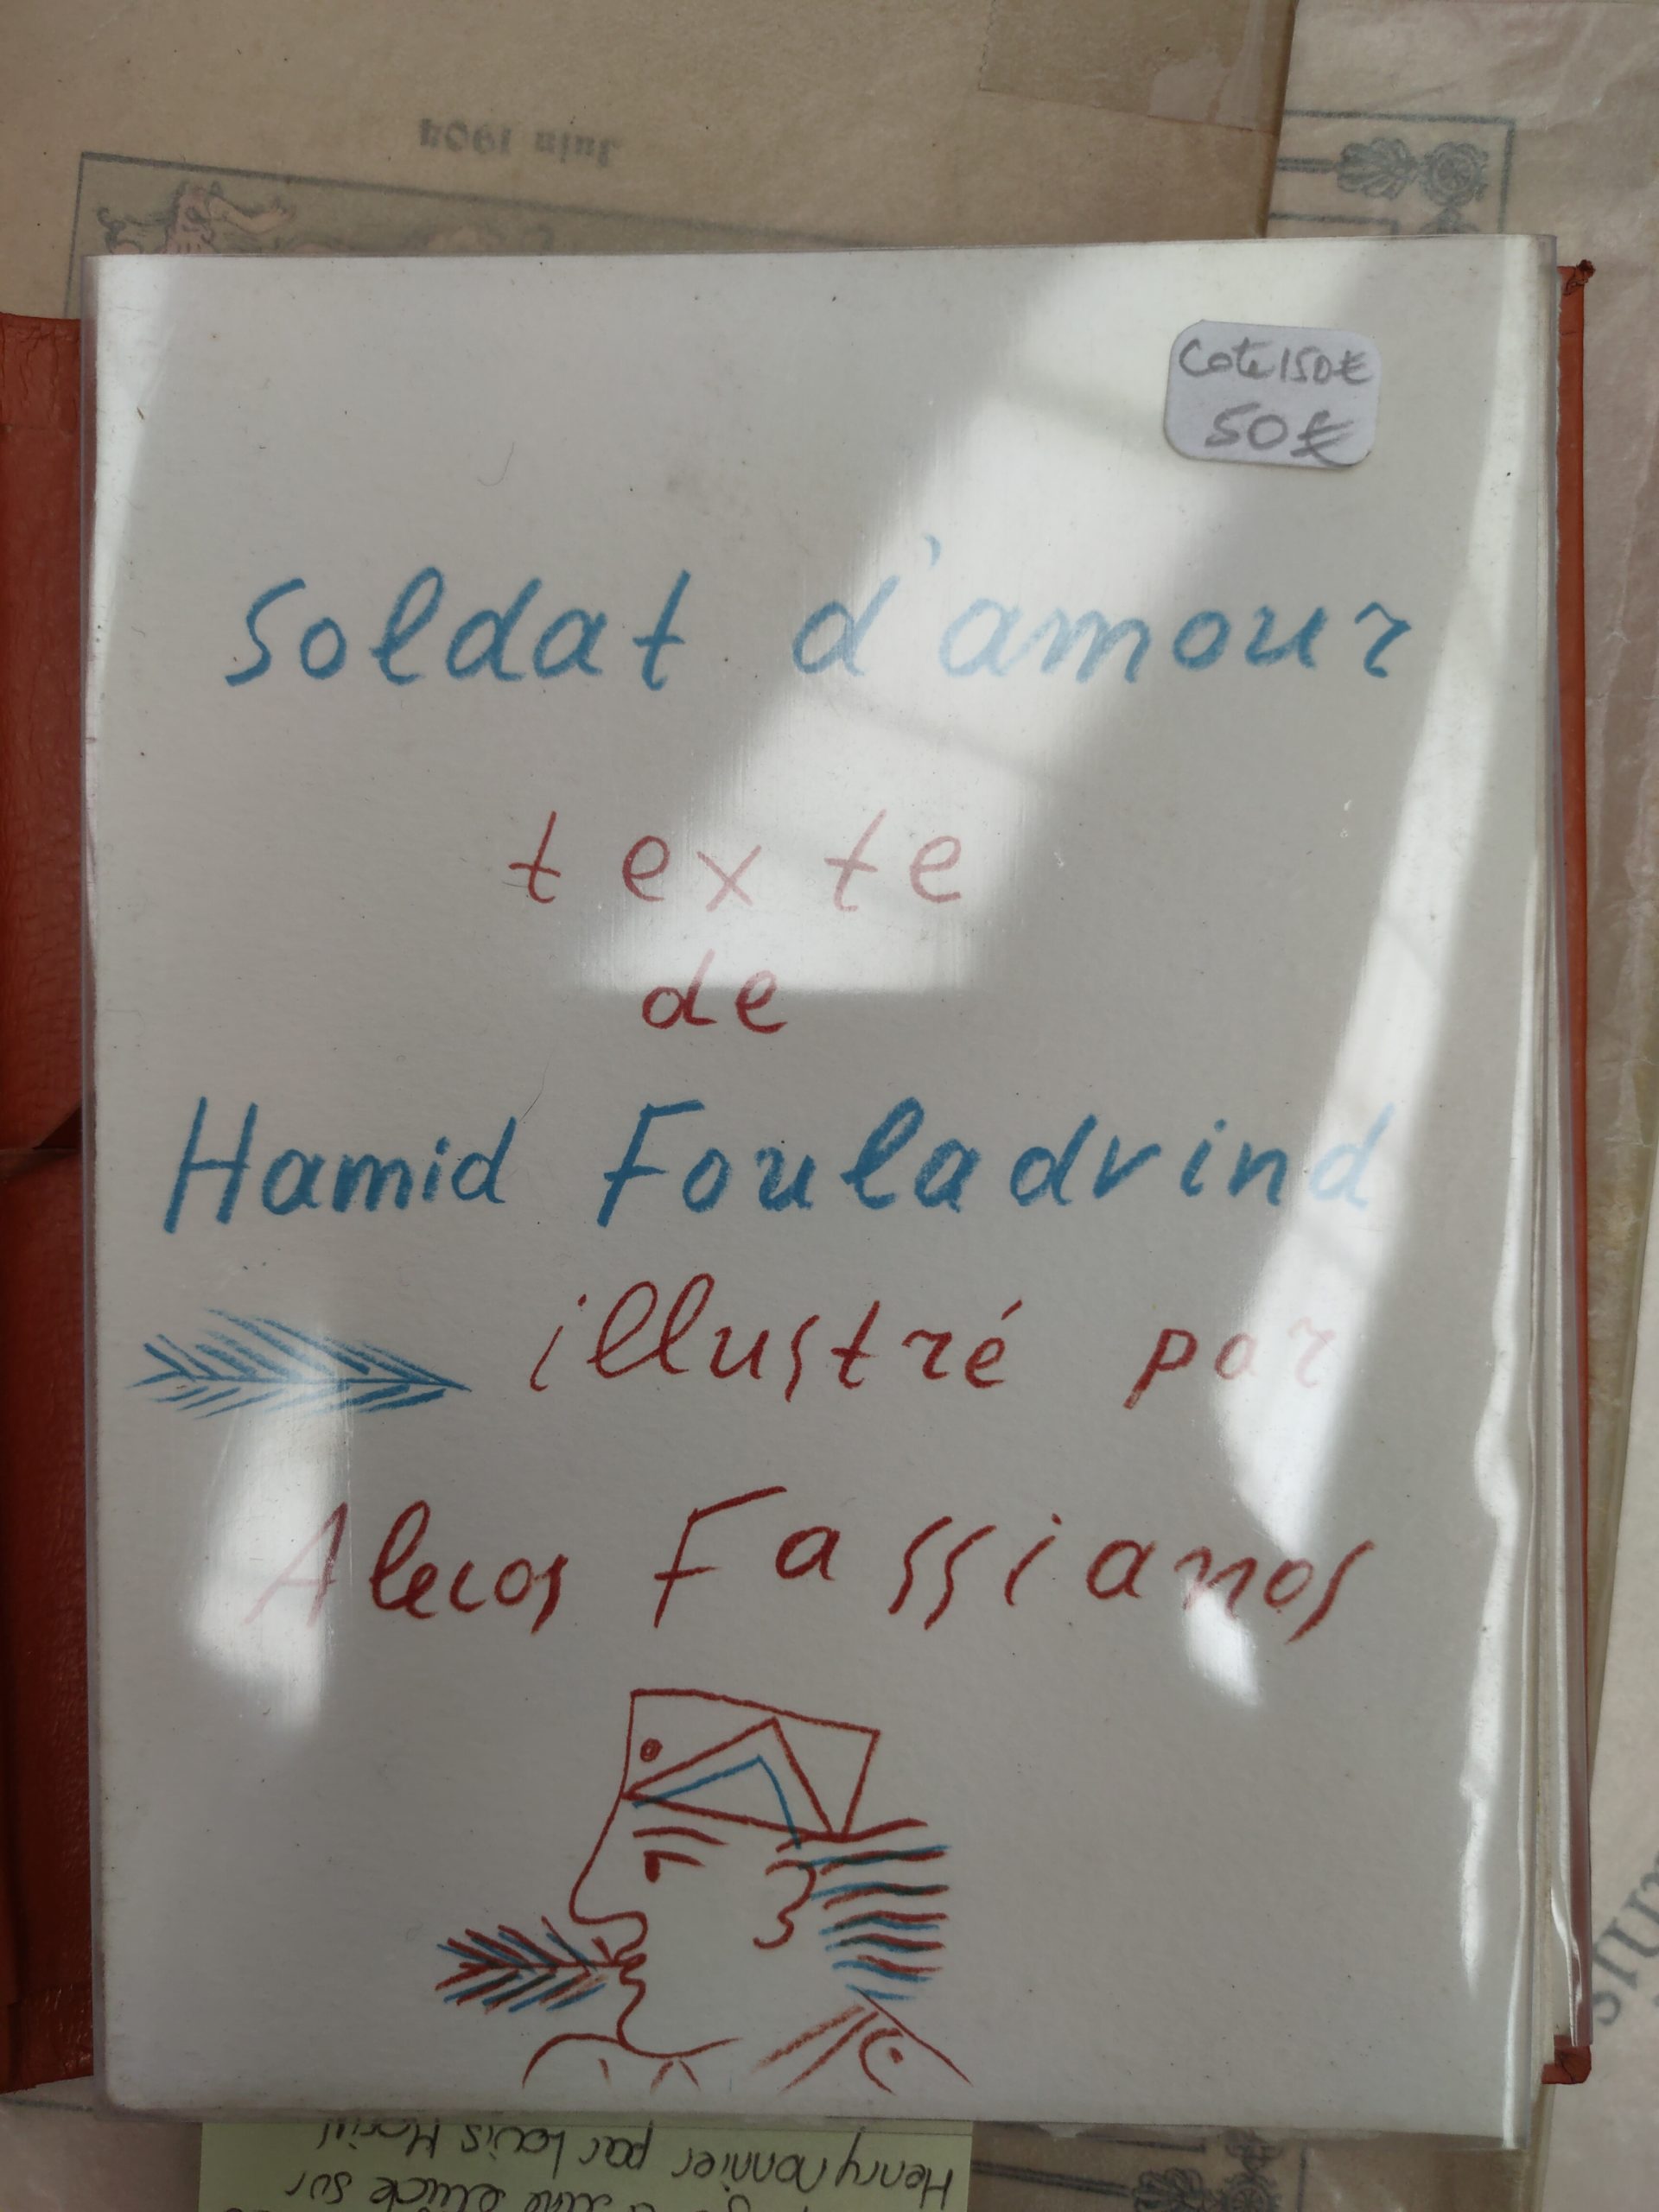 Juin 1904
Cote 150€
50€
Soldat d'amour
texte
de
Hamid Fouladvind
illustré par
Alecos Fassianos
Henry Monnier par Louis Morin
une étude sur